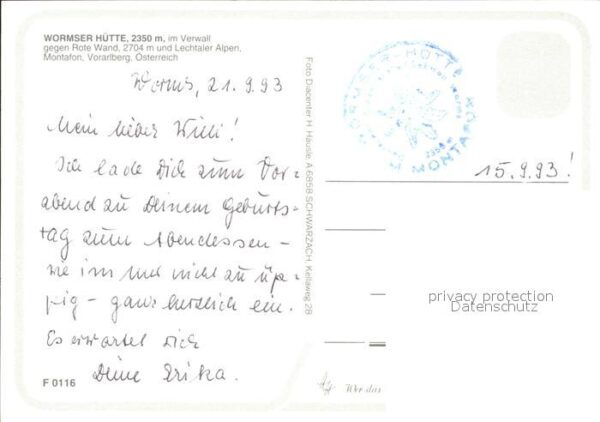 WORMSER HÜTTE, 2350 m, im Verwall
gegen Rote Wand, 2704 m und Lechtaler Alpen,
Montafon, Vorarlberg, Österreich
Worms, 21.9.93
Mein lieber Willi!
Ich lade Dich zum Vor=
abend zu Deinem Geburts-
tag zum Abendessen –
wie immer nicht zu üp=
pig – ganz herzlich ein.
Es erwartet Dich
Deine Erika.
F 0116
Foto Diacenter H. Häusle, A 6858 SCHWARZACH, Kellaweg 28
WORMSER-HÜTTE
MONTAFON
15.9.93!
privacy protection
Datenschutz
Wer das